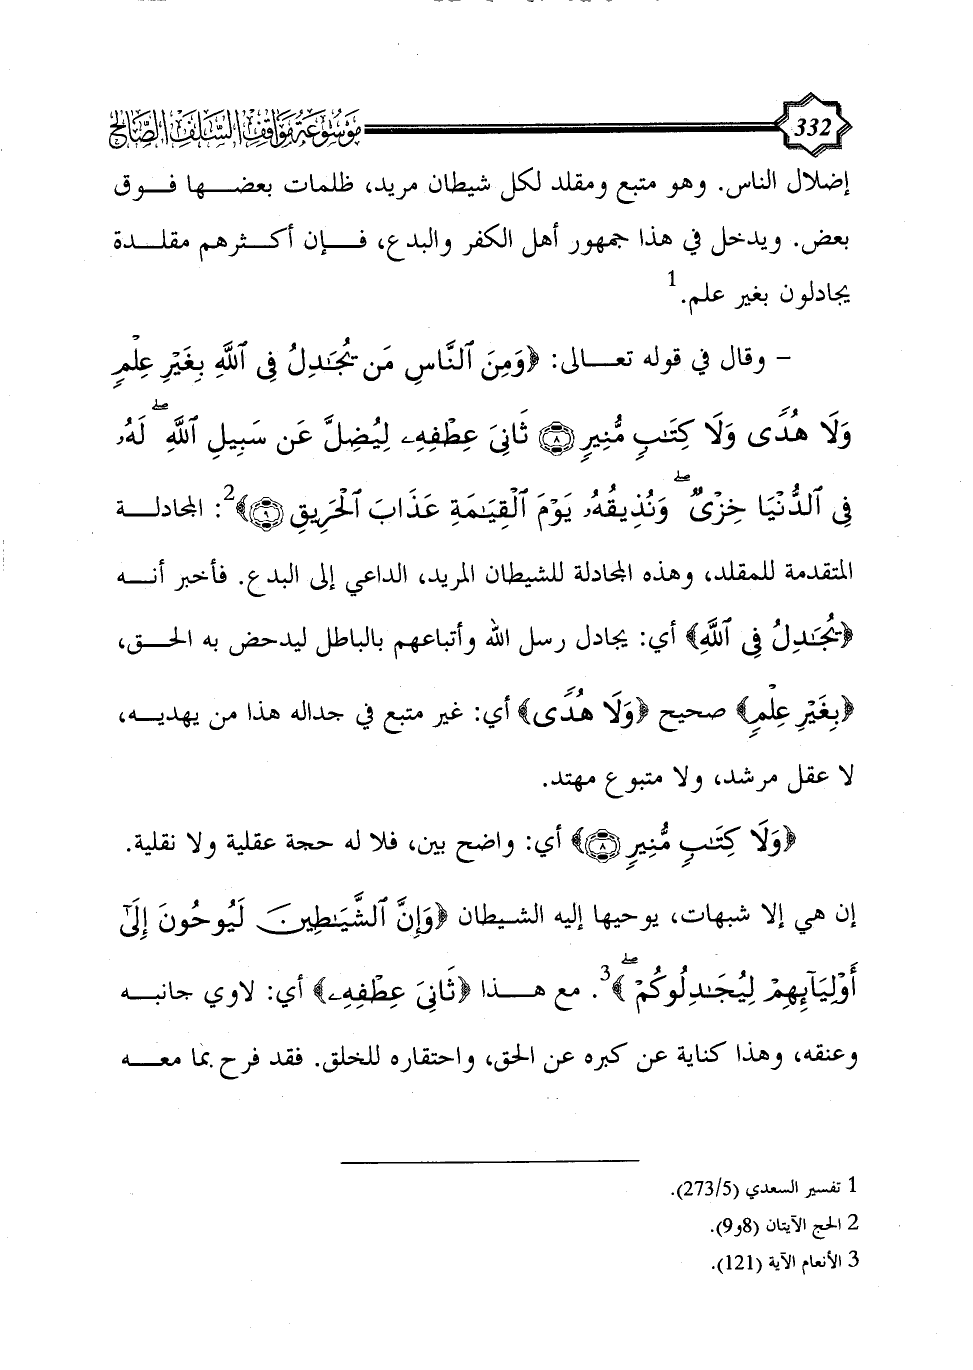 332
موسوعة مواقف السلف الصالح
إضلال الناس. وهو متبع ومقلد لكل شيطان مريد، ظلمات بعضها فوق
بعض. ويدخل في هذا جمهور أهل الكفر والبدع، فإن أكثرهم مقلدة
يجادلون بغير علم.1
- وقال في قوله تعالى: ﴿وَمِنَ ٱلنَّاسِ مَن يُجَـٰدِلُ فِى ٱللَّهِ بِغَيْرِ عِلْمٍ
وَلَا هُدًى وَلَا كِتَـٰبٍ مُّنِيرٍ ۝٨ ثَانِىَ عِطْفِهِۦ لِيُضِلَّ عَن سَبِيلِ ٱللَّهِ ۖ لَهُۥ
فِى ٱلدُّنْيَا خِزْىٌ ۖ وَنُذِيقُهُۥ يَوْمَ ٱلْقِيَـٰمَةِ عَذَابَ ٱلْحَرِيقِ ۝٩﴾2: المجادلة
المتقدمة للمقلد، وهذه المجادلة للشيطان المريد، الداعي إلى البدع. فأخبر أنه
﴿يُجَـٰدِلُ فِى ٱللَّهِ﴾ أي: يجادل رسل الله وأتباعهم بالباطل ليدحض به الحق،
﴿بِغَيْرِ عِلْمٍ﴾ صحيح ﴿وَلَا هُدًى﴾ أي: غير متبع في جداله هذا من يهديه،
لا عقل مرشد، ولا متبوع مهتد.
﴿وَلَا كِتَـٰبٍ مُّنِيرٍ ۝٨﴾ أي: واضح بين، فلا له حجة عقلية ولا نقلية.
إن هي إلا شبهات، يوحيها إليه الشيطان ﴿وَإِنَّ ٱلشَّيَـٰطِينَ لَيُوحُونَ إِلَىٰٓ
أَوْلِيَآئِهِمْ لِيُجَـٰدِلُوكُمْ ۖ﴾3. مع هذا ﴿ثَانِىَ عِطْفِهِۦ﴾ أي: لاوي جانبه
وعنقه، وهذا كناية عن كبره عن الحق، واحتقاره للخلق. فقد فرح بما معه
1 تفسير السعدي (273/5).
2 الحج الآيتان (8و9).
3 الأنعام الآية (121).